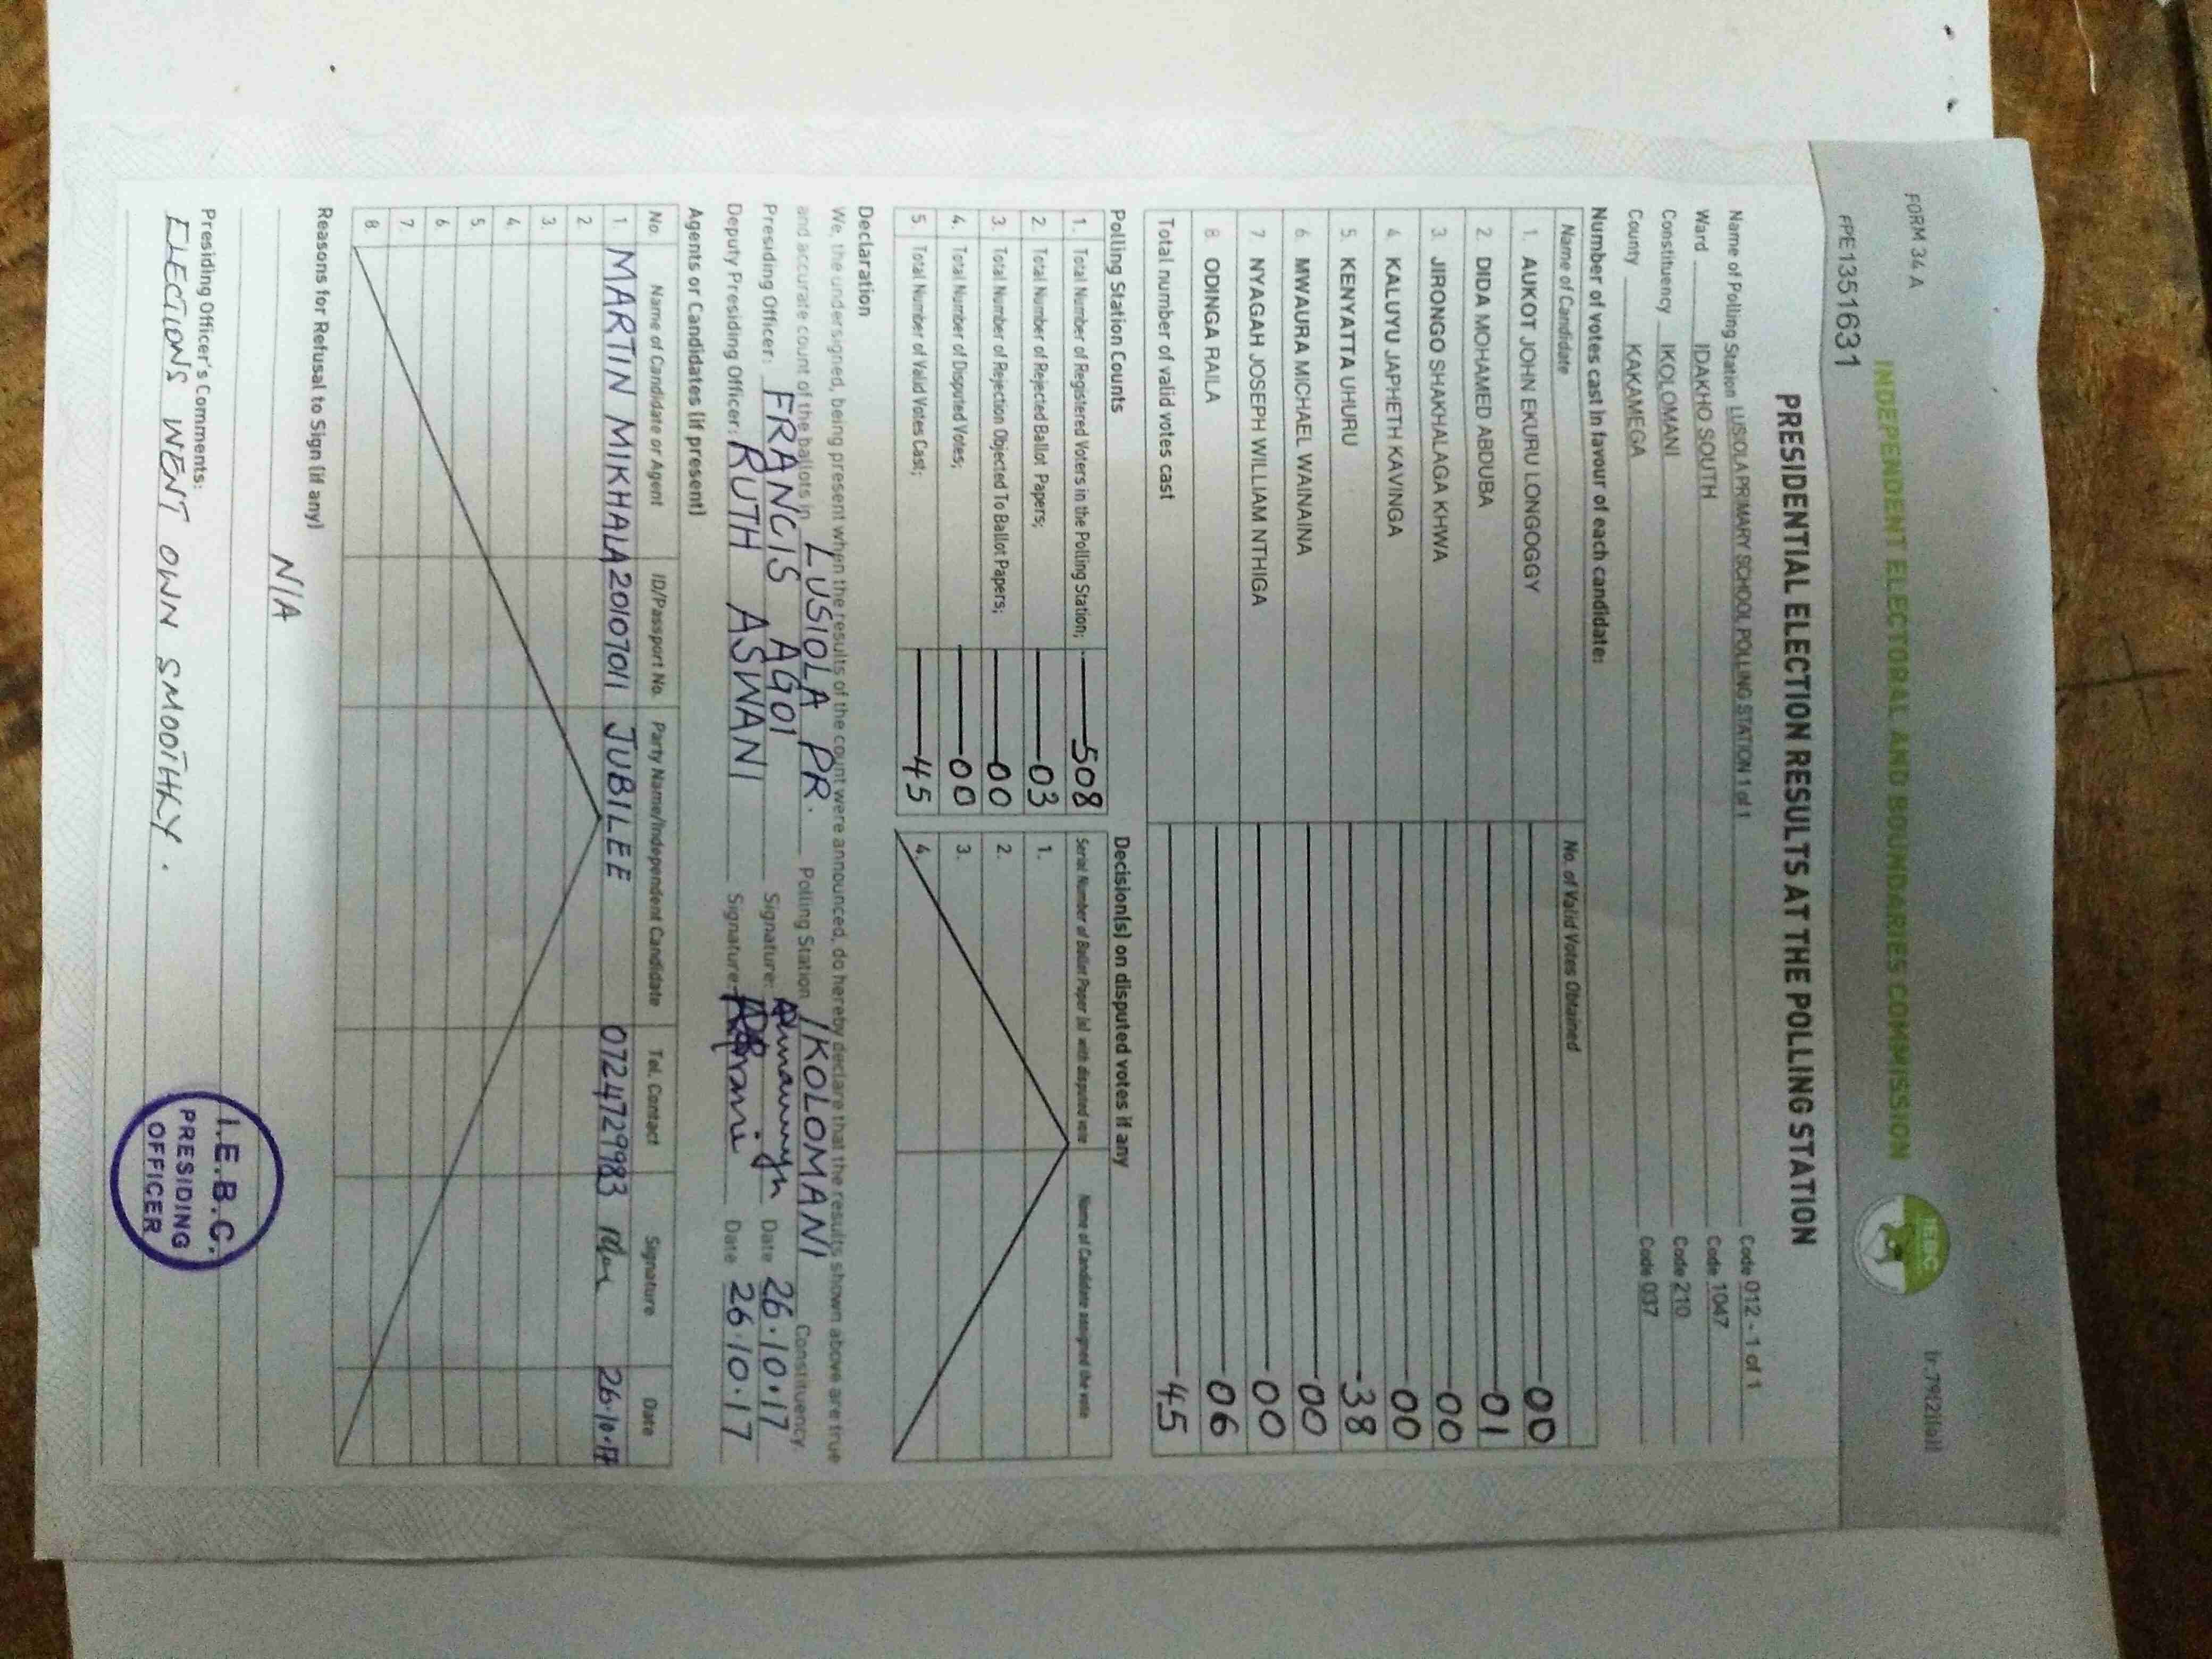 FORM 34 A
INDEPENDENT ELECTORAL AND BOUNDARIES COMMISSION
IEBC
PPE1351631
PRESIDENTIAL ELECTION RESULTS AT THE POLLING STATION
Name of Polling Station LUSIOLA PRIMARY SCHOOL POLLING STATION 1 of 1 Code 012 - 1 of 1
Ward IDAKHO SOUTH Code 1047
Constituency IKOLOMANI Code 210
County KAKAMEGA Code 037
Number of votes cast in favour of each candidate:
Name of Candidate No. of Valid Votes Obtained
1. AUKOT JOHN EKURU LONGOGGY 00
2. DIDA MOHAMED ABDUBA 01
3. JIRONGO SHAKHALAGA KHWA 00
4. KALUYU JAPHETH KAVINGA 00
5. KENYATTA UHURU 38
6. MWAURA MICHAEL WAINAINA 00
7. NYAGAH JOSEPH WILLIAM NTHIGA 00
8. ODINGA RAILA 06
Total number of valid votes cast 45
Polling Station Counts
1. Total Number of Registered Voters in the Polling Station; 508
2. Total Number of Rejected Ballot Papers; 03
3. Total Number of Rejection Objected To Ballot Papers; 00
4. Total Number of Disputed Votes; 00
5. Total Number of Valid Votes Cast; 45
Decision(s) on disputed votes if any
Serial Number of Ballot Paper (s) with disputed vote Name of Candidate assigned the vote
1.
2.
3.
4.
Declaration
We, the undersigned, being present when the results of the count were announced, do hereby declare that the results shown above are true
and accurate count of the ballots in LUSIOLA PR. Polling Station IKOLOMANI Constituency
Presiding Officer: FRANCIS AGOI Signature: Date 26.10.17
Deputy Presiding Officer: RUTH ASWANI Signature: Date 26.10.17
Agents or Candidates (if present)
No. Name of Candidate or Agent ID/Passport No. Party Name/Independent Candidate Tel. Contact Signature Date
1. MARTIN MIKHALA 20107011 JUBILEE 0724729983 26.10.17
2.
3.
4.
5.
6.
7.
8.
Reasons for Refusal to Sign (if any)
N/A
Presiding Officer's Comments:
ELECTIONS WENT OWN SMOOTHLY.
I.E.B.C.
PRESIDING
OFFICER